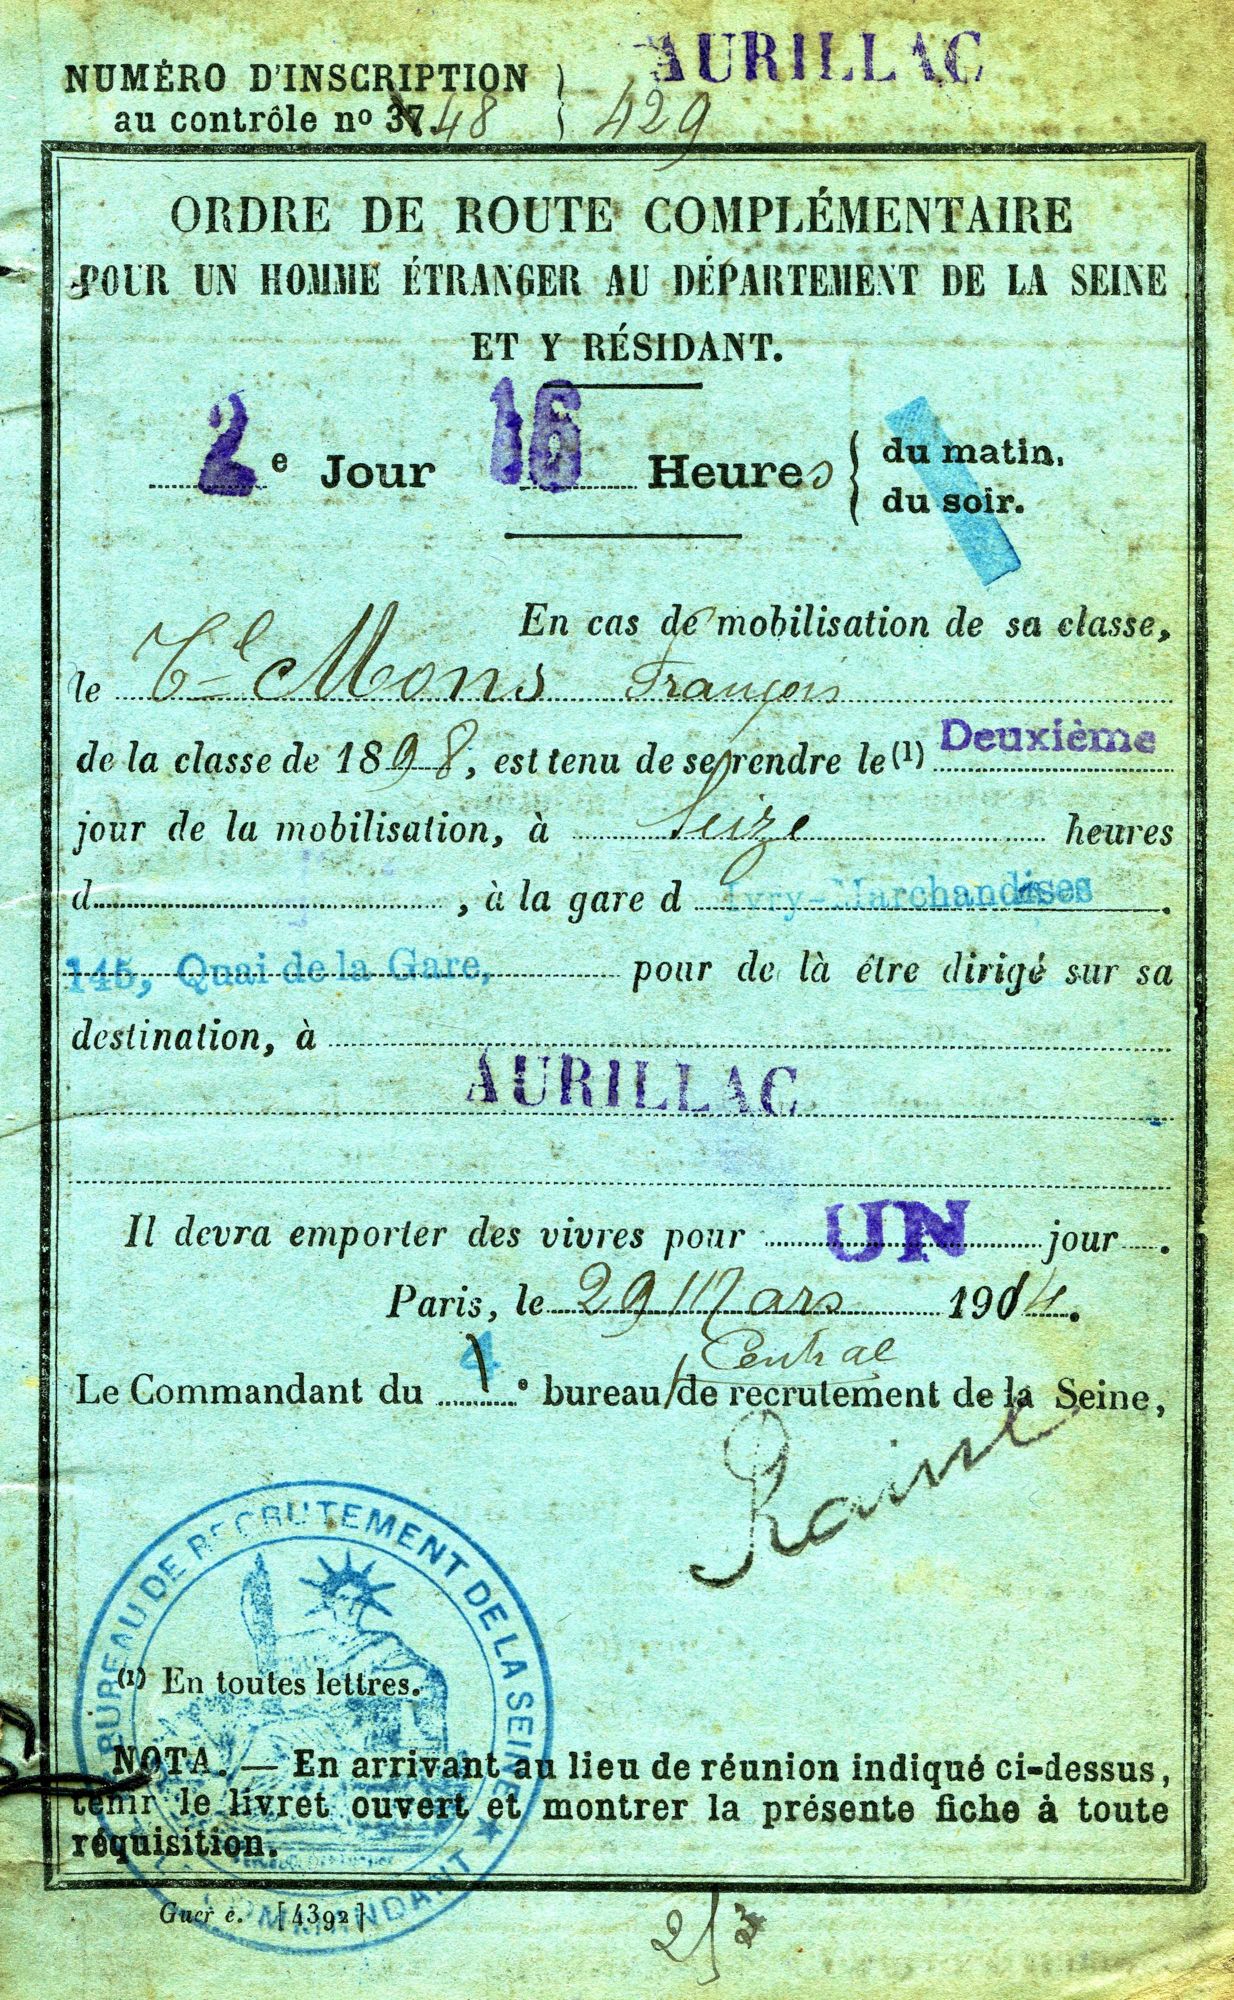 AURILLAC
NUMÉRO D'INSCRIPTION
au contrôle nº 37. 48 } 429
ORDRE DE ROUTE COMPLÉMENTAIRE
POUR UN HOMME ÉTRANGER AU DÉPARTEMENT DE LA SEINE
ET Y RÉSIDANT.
2e Jour 16 Heures { du matin.
du soir.
En cas de mobilisation de sa classe,
le Mons François
de la classe de 1898, est tenu de se rendre le (1) Deuxième
jour de la mobilisation, à Seize heures
d , à la gare d Ivry-Marchandises.
145, Quai de la Gare, pour de là être dirigé sur sa
destination, à
AURILLAC
Il devra emporter des vivres pour UN jour .
Paris, le 29 Mars 1914.
Central
Le Commandant du 4e bureau de recrutement de la Seine,
BUREAU DE RECRUTEMENT DE LA SEINE
COMMANDANT
(1) En toutes lettres.
NOTA. — En arrivant au lieu de réunion indiqué ci-dessus,
tenir le livret ouvert et montrer la présente fiche à toute
réquisition.
Guer e. [4392]